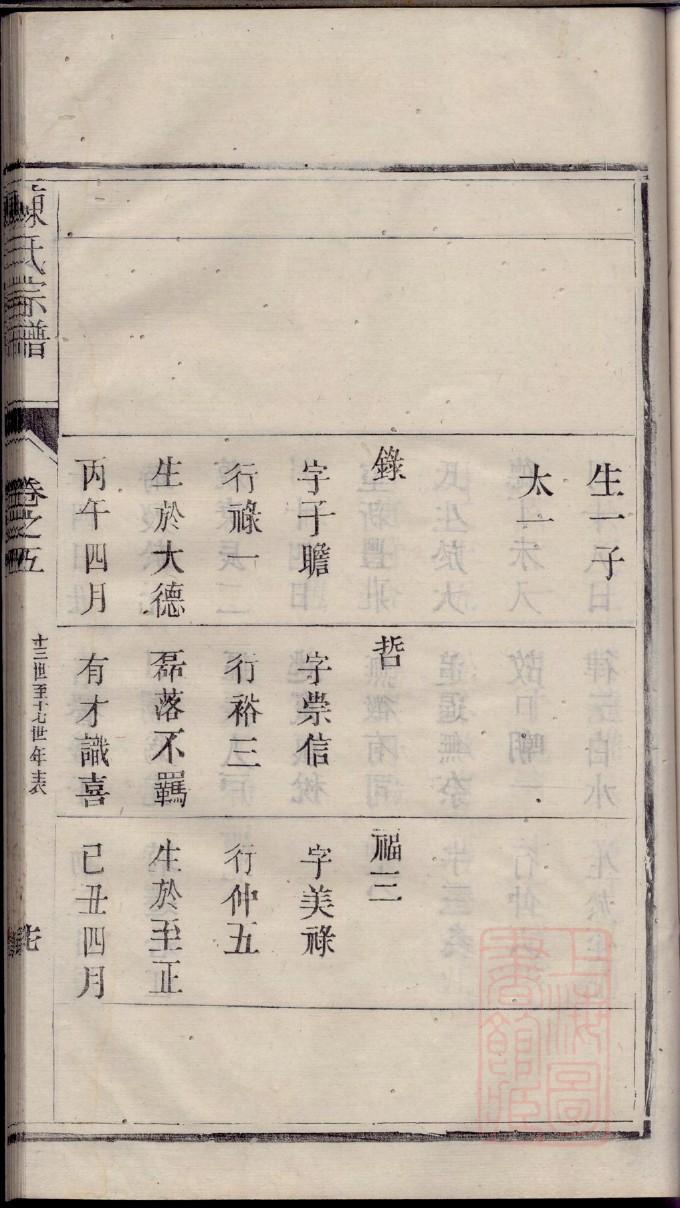 生一子
太一
錄
字子瞻
行祿一
生於大德
丙午四月
哲
字崇信
行裕三
磊落不羈
有才識喜
福三
字美祿
行仲五
生於至正
己丑四月
陳氏宗譜
卷之五
十三世至十七世年表
上海圖
書館